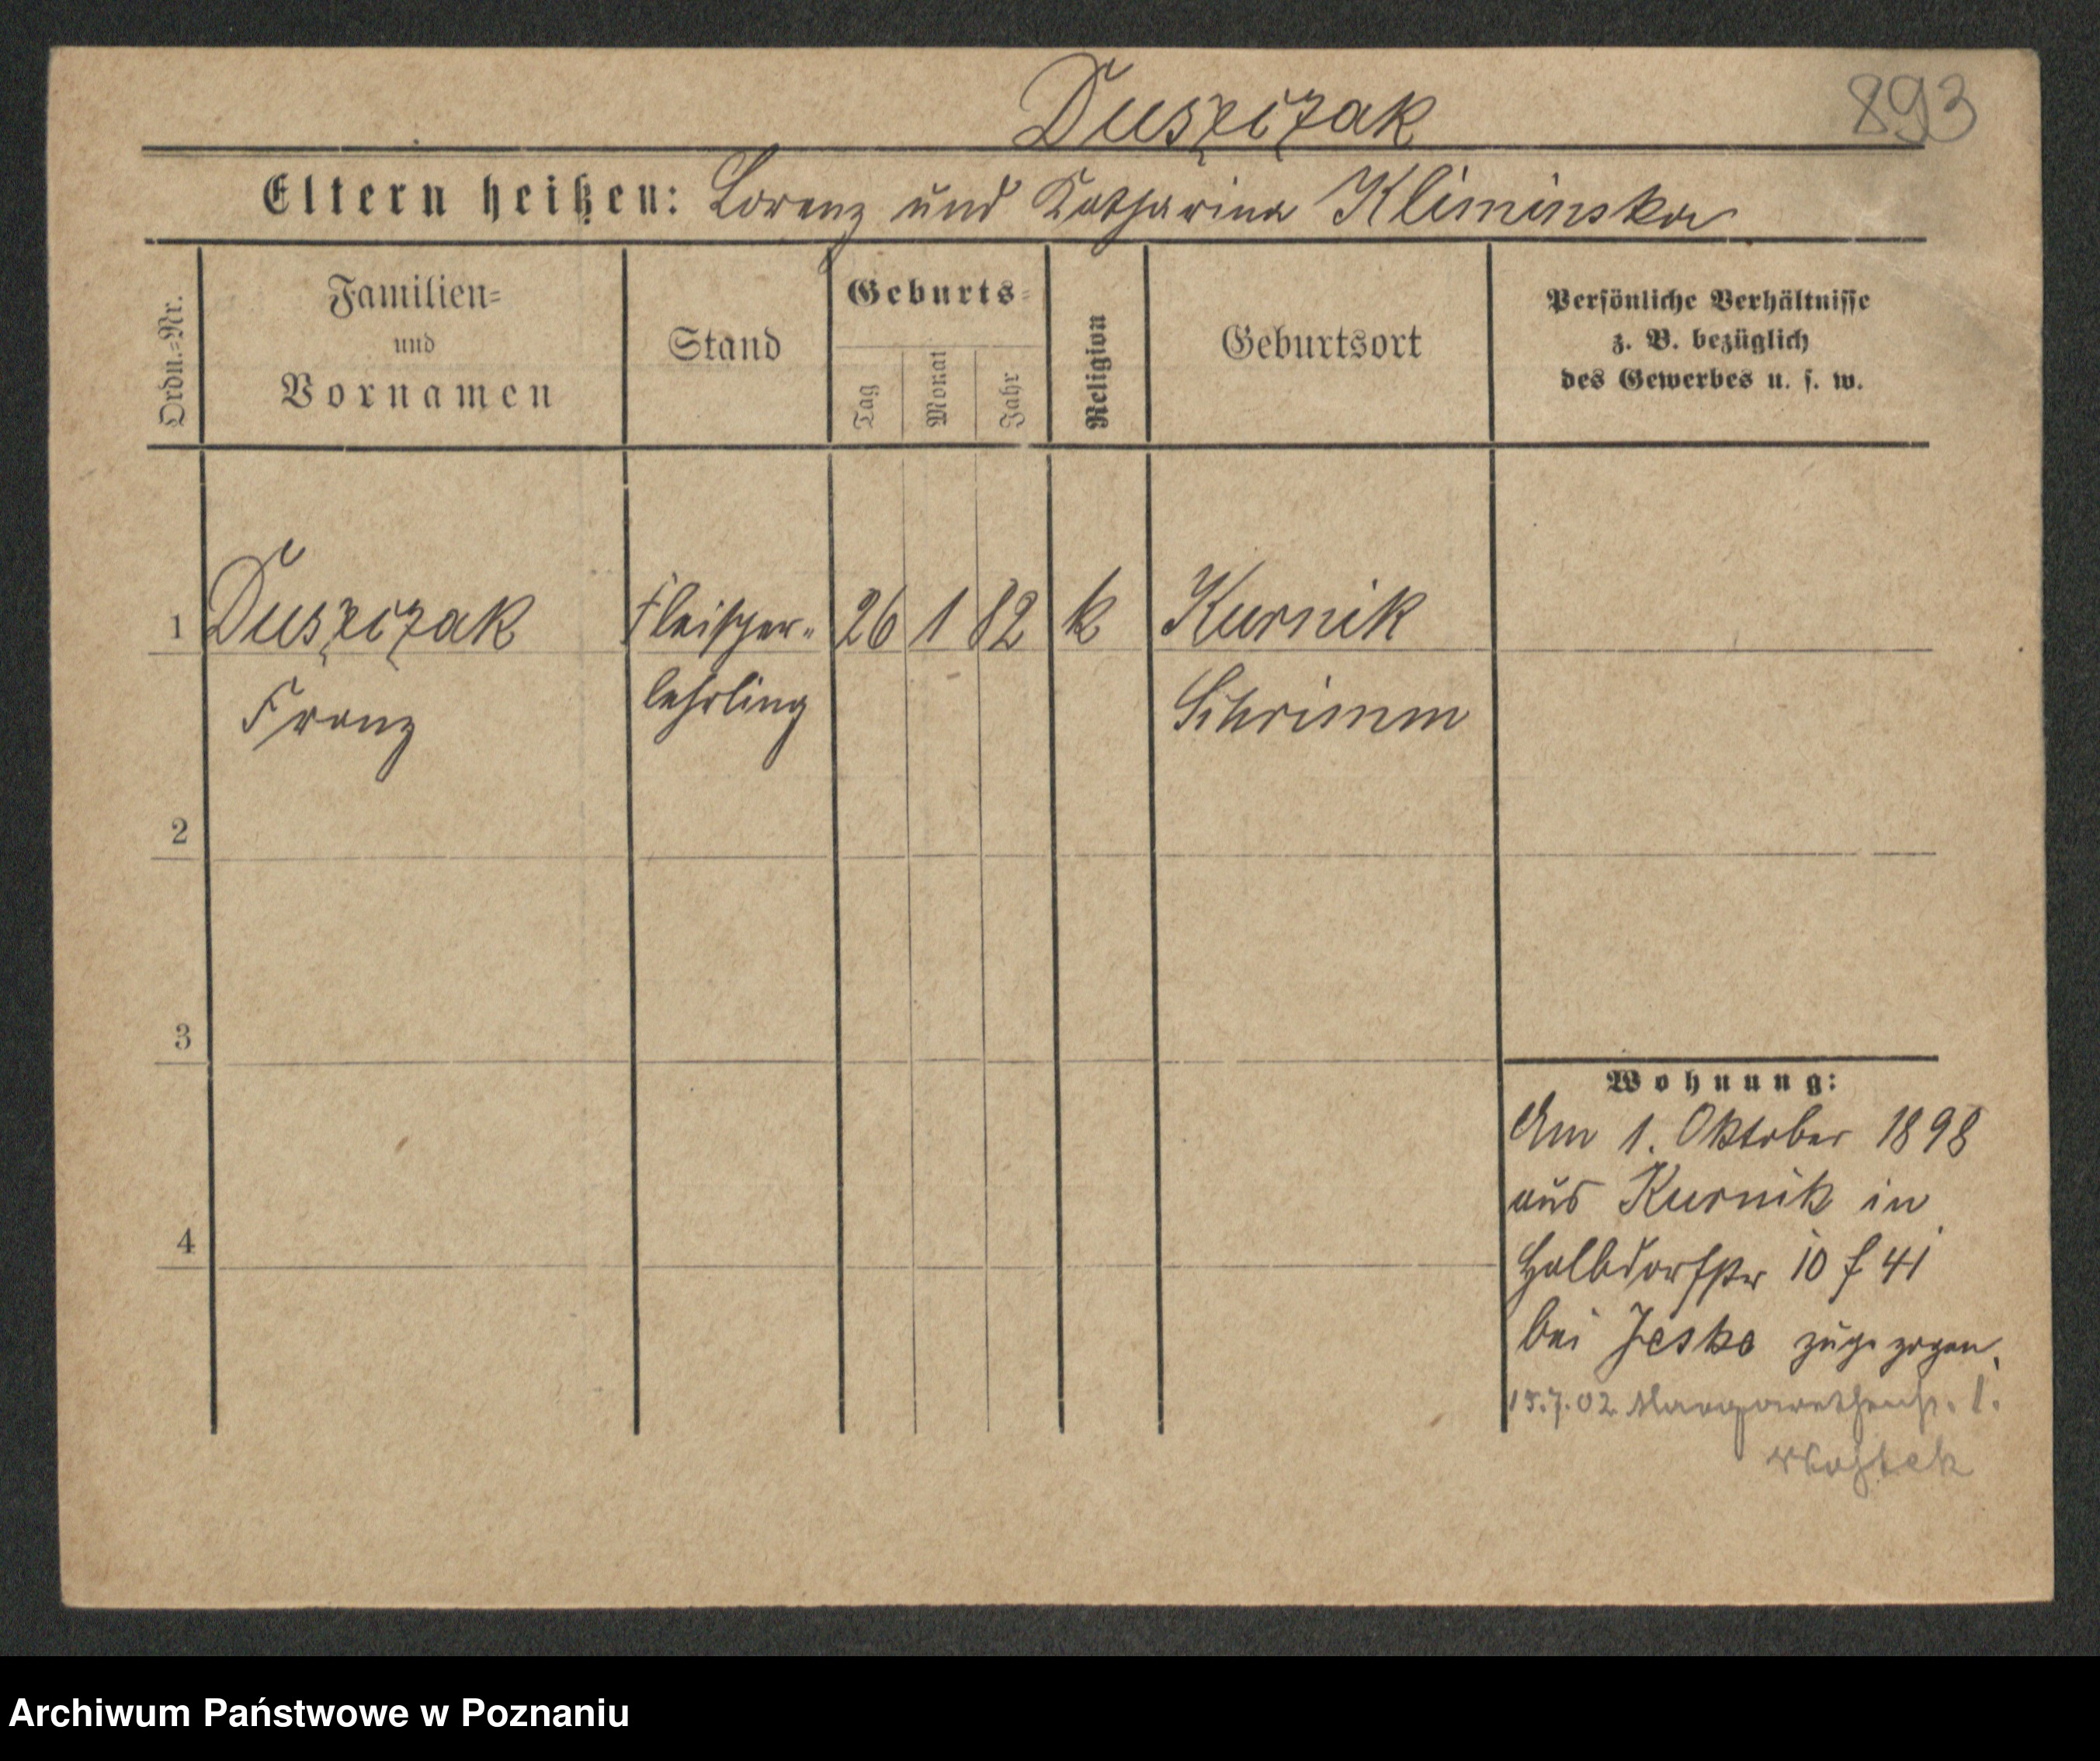 Duszczak
893
Eltern heißen: Lorenz und Katharina Kliminska
Ordn.=Nr.
Familien=
und
Vornamen
Stand
Geburts=
Tag
Monat
Jahr
Religion
Geburtsort
Persönliche Verhältnisse
z. B. bezüglich
des Gewerbes u. s. w.
1 Duszczak Fleischer- 26 1 82 k Kurnik
Franz lehrling Schrimm
2
3
4
Wohnung:
Am 1. Oktober 1898
aus Kurnik in
Halbdorfstr 10 f 41
bei Jeske zugezogen.
15.7.02 Margarethenstr. 1.
Archiwum Państwowe w Poznaniu